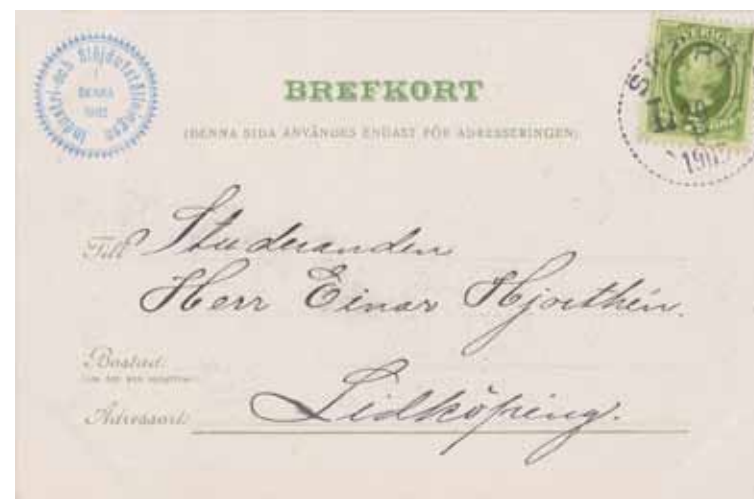 Industri- och Slöjdutställningen
i
SKARA
BREFKORT
(DENNA SIDA ANVÄNDES ENDAST FÖR ADRESSERINGEN)
SVERIGE
Till Studeranden
Herr Einar Hjorthén.
Bostad:
Adressort: Lidköping.